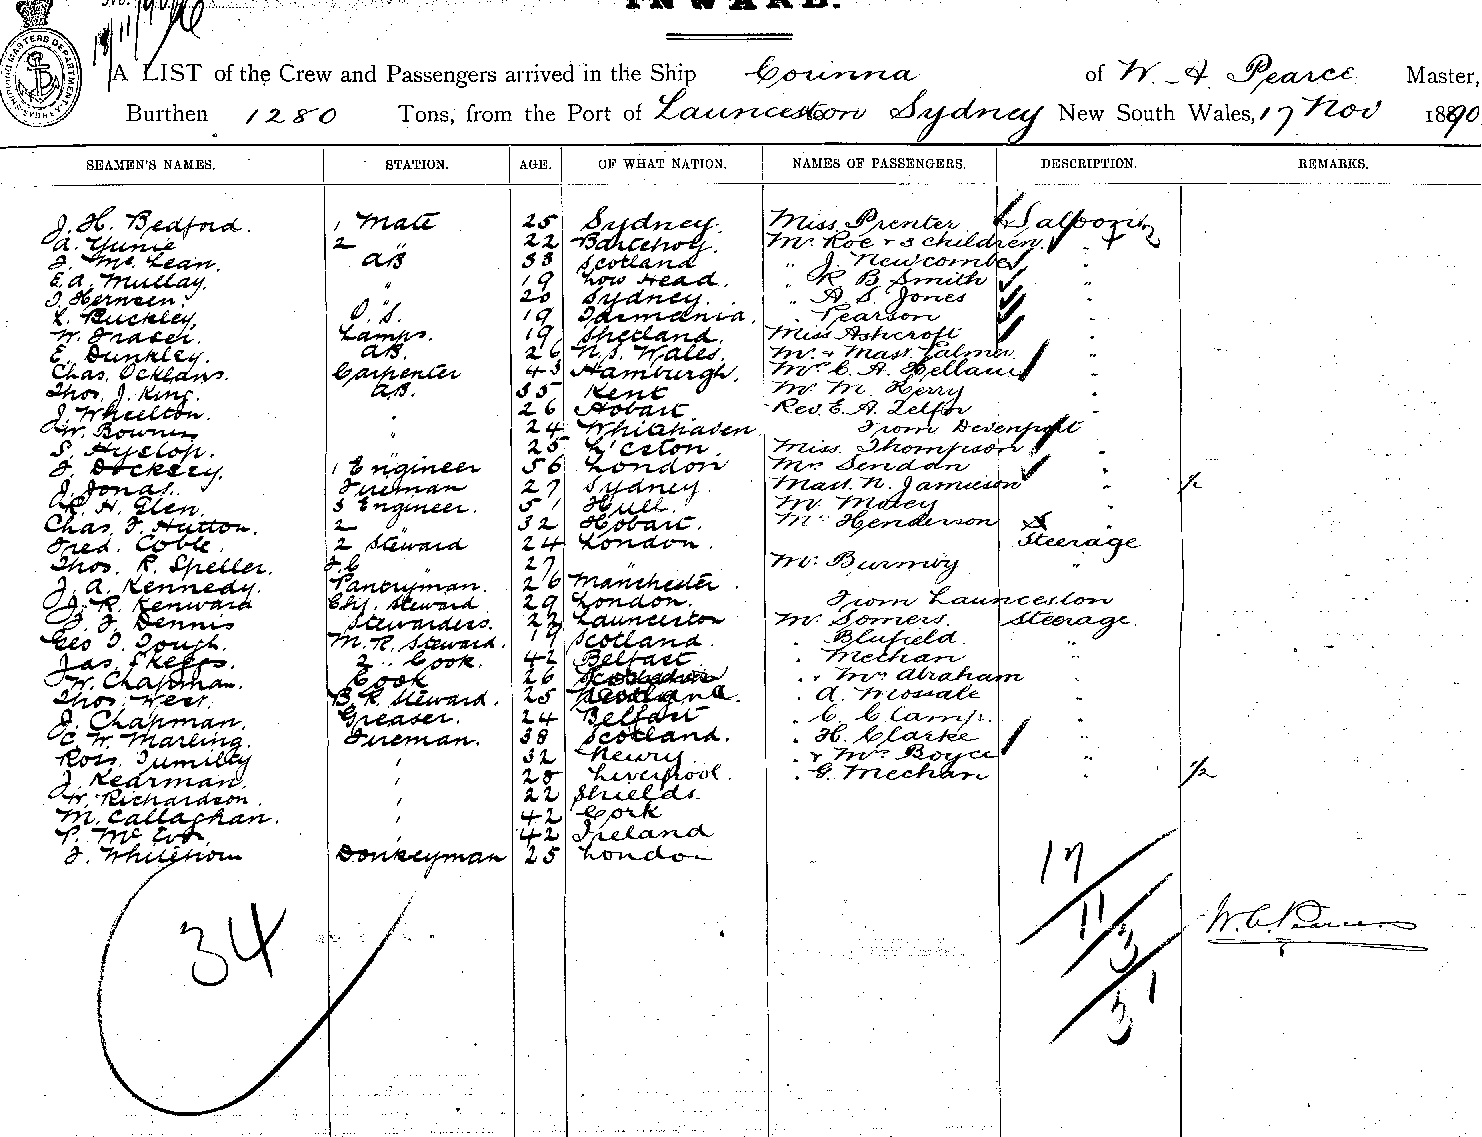 INWARD.
A LIST of the Crew and Passengers arrived in the Ship Corinna of W. A. Pearce Master,
Burthen 1280 Tons, from the Port of Launceston Sydney New South Wales, 17 Nov 1890
SEAMEN'S NAMES. STATION. AGE. OF WHAT NATION. NAMES OF PASSENGERS. DESCRIPTION. REMARKS.
J. H. Bedford. 1 Mate 25 Sydney. Miss Prenter Saloon
A. 2 " 22 Mr Roe & 3 children "
J. Mc Lean. AB 33 Scotland " J. Newcombe "
E. A. Mullay. " 19 Low Head. " R B Smith "
20 Sydney. " A S. Jones "
L. Buckley, O.S. 19 Tasmania. " Pearson "
W. Fraser. Lamps. 19 Shetland. Miss Ashcroft "
E. Dunkley. AB. 26 N. S. Wales. Mr & Mast. "
Chas. Carpenter 43 Hamburgh. "
Thos. J. King. AB. 35 Kent Mr M. "
J. Wheelton. " 26 Hobart Rev. E. A. "
W. " 24 Whitehaven From Devenport
S. Hyslop. 25 L'ceston. Miss Thompson "
J. 1 Engineer 56 London Mr Sendan "
J. Jonas. Fireman 27 Sydney Mast. N. Jamieson " 1/2
H. Glen. 3 Engineer. 51 Hull Mr "
Chas. F. Hutton. 2 " 32 Hobart. Mr Henderson
Fred. Coble. 2 Steward 24 London. Steerage
Thos. R. Speller. 27 " Mr "
J. A. Kennedy. Pantryman. 26 Manchester
J. R. Kenward Chf. Steward 29 London. From Launceston
J. J. Dennis Stewardess. 22 Launceston Mr Somers. Steerage.
Geo Gough. M. R. Steward. 19 Scotland. " Blufield "
Jas. Skeggs. 2 " Cook. 42 Belfast " Mechan "
W. Chapman. Cook 26 " Mrs Abraham "
Thos. West. B. R. Steward. 25 Scotland. " A. "
J. Chapman. Greaser. 24 Belfast " C. Clamp. "
C. W. Marling. Fireman. 38 Scotland. " H. Clarke "
Ross. " 32 Newry " & Mrs Boyce "
J. Kearman " 28 Liverpool. " G. Mechan " 1/2
W. Richardson. " 22 Shields.
M. Callaghan. " 42 Cork
P. " 42 Ireland
J. Donkeyman 25 London
34
17
11
3
31